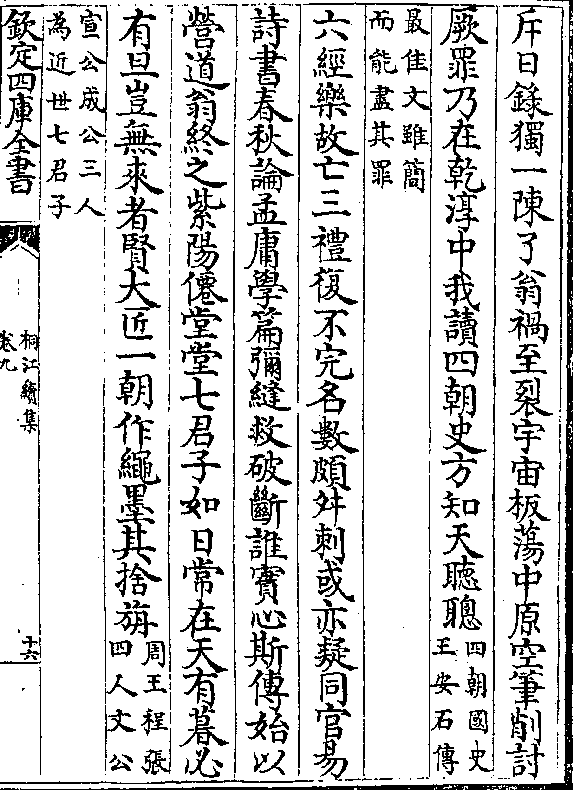 斥日錄獨一陳了翁禍至裂宇宙板蕩中原空筆削討
厥罪乃在乾淳中我讀四朝史方知天聽聰四朝國史
王安石傳
最佳文雖簡
而能盡其罪
六經樂故亡三禮復不完名數頗舛刺或亦疑同官易
詩書春秋論孟庸學篇彌縫救破斷誰實心斯傳始以
營道翁終之紫陽僊堂堂七君子如日常在天有暮必
有旦豈無來者賢大匠一朝作繩墨其捨旃周王程張
四人文公
宣公成公三人
為近世七君子
欽定四庫全書
桐江續集
卷九
十六